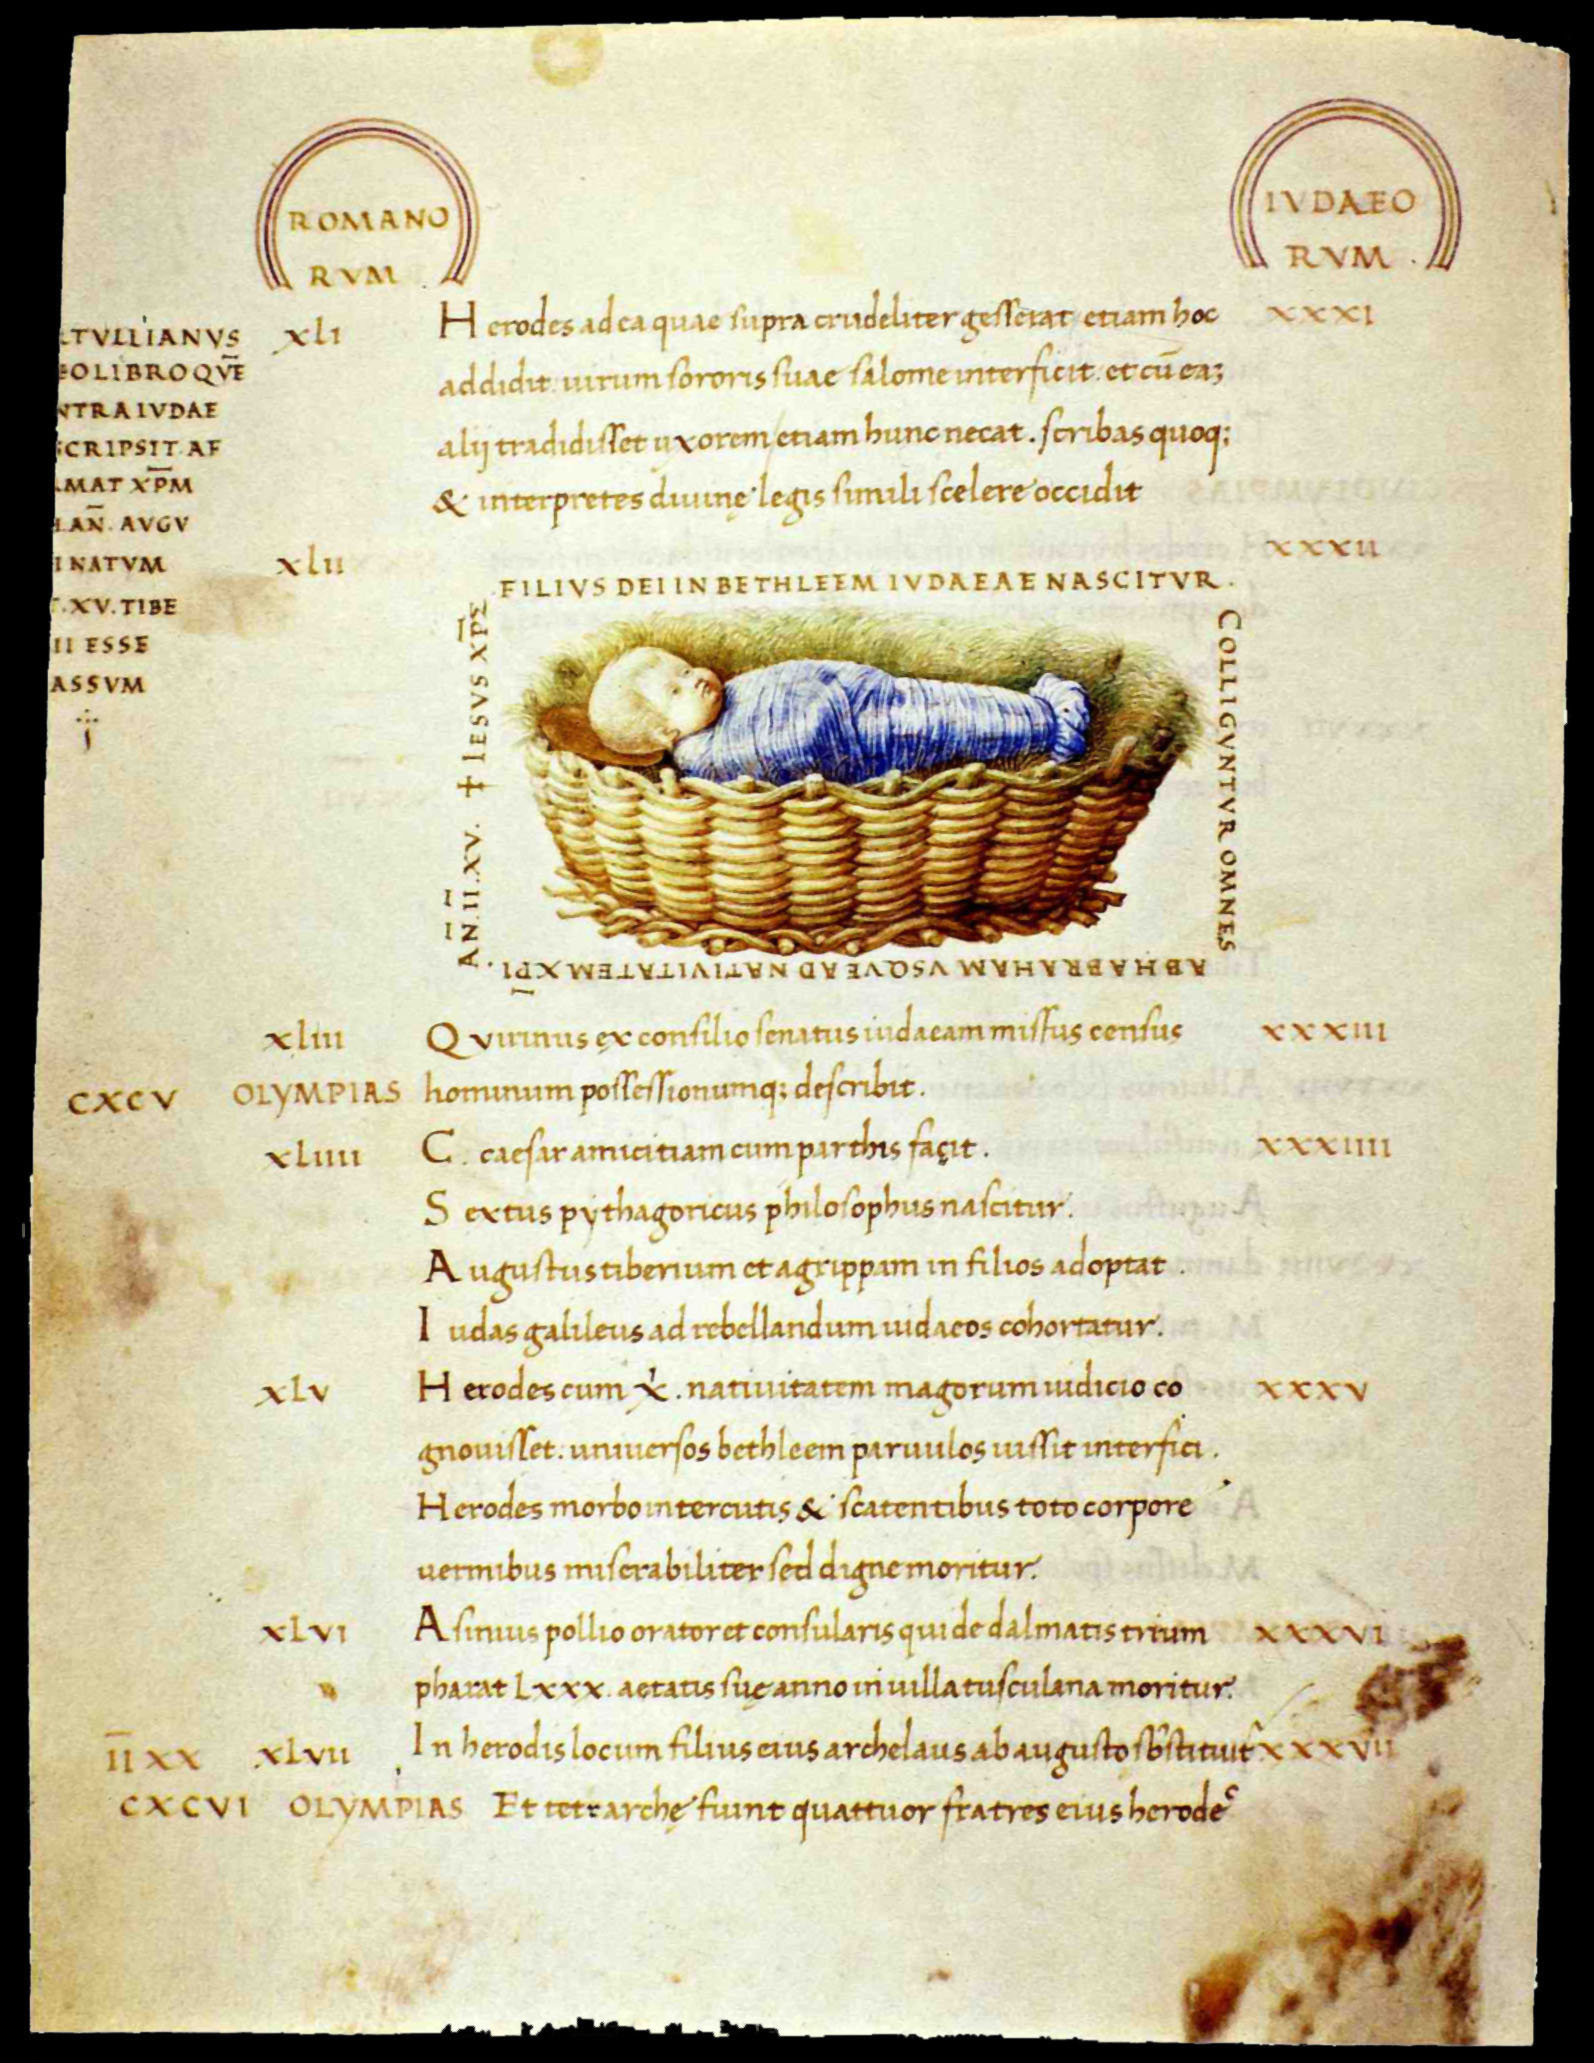 ROMANO
RVM
IVDAEO
RVM .
TVLLIANVS
OLIBRO QVĒ
NTRA IVDAE
SCRIPSIT AF
MAT XP̄M
AN̄. AVGV
I NATVM
XV. TIBE
II ESSE
ASSVM
xLi
Herodes ad ea quae supra crudeliter gesserat etiam hoc
xxxi
addidit. uirum sororis suae salome interficit. et cū eaʒ
alij tradidisset uxorem/etiam hunc necat. scribas quoq;
& interpretes diuinę legis simili scelere occidit
xLii
xxxii
FILIVS DEI IN BETHLEEM IVDAEAE NASCITVR .
COLLIGVNTVR OMNES
AB HABRAHAM VSQVE AD NATIVITATEM XP̄I .
AN̄. ĪĪ. XV. † IESVS XP̄Σ
xLiii
Qvirinus ex consilio senatus iudaeam missus census
xxxiii
CXCV OLYMPIAS hominum possessionumq; describit.
xLiiii
C. caesar amicitiam cum parthis façit.
xxxiiii
Sextus pythagoricus philosophus nascitur.
Augustus tiberium et agrippam in filios adoptat.
Iudas galileus ad rebellandum iudaeos cohortatur.
xLv
Herodes cum x̄. natiuitatem magorum iudicio co
xxxv
gnouisset. uniuersos bethleem paruulos iussit interfici.
Herodes morbo intercutis & scatentibus toto corpore
uermibus miserabiliter sed digne moritur.
xLvi
Asinius pollio orator et consularis qui de dalmatis trium
xxxvi
pharat Lxxx. aetatis suę anno in uilla tusculana moritur.
ĪĪ XX xLvii
In herodis locum filius eius archelaus ab augusto sbstituit
xxxvii
CXCVI OLYMPIAS Et tetrarchę fiunt quattuor fratres eius herodes